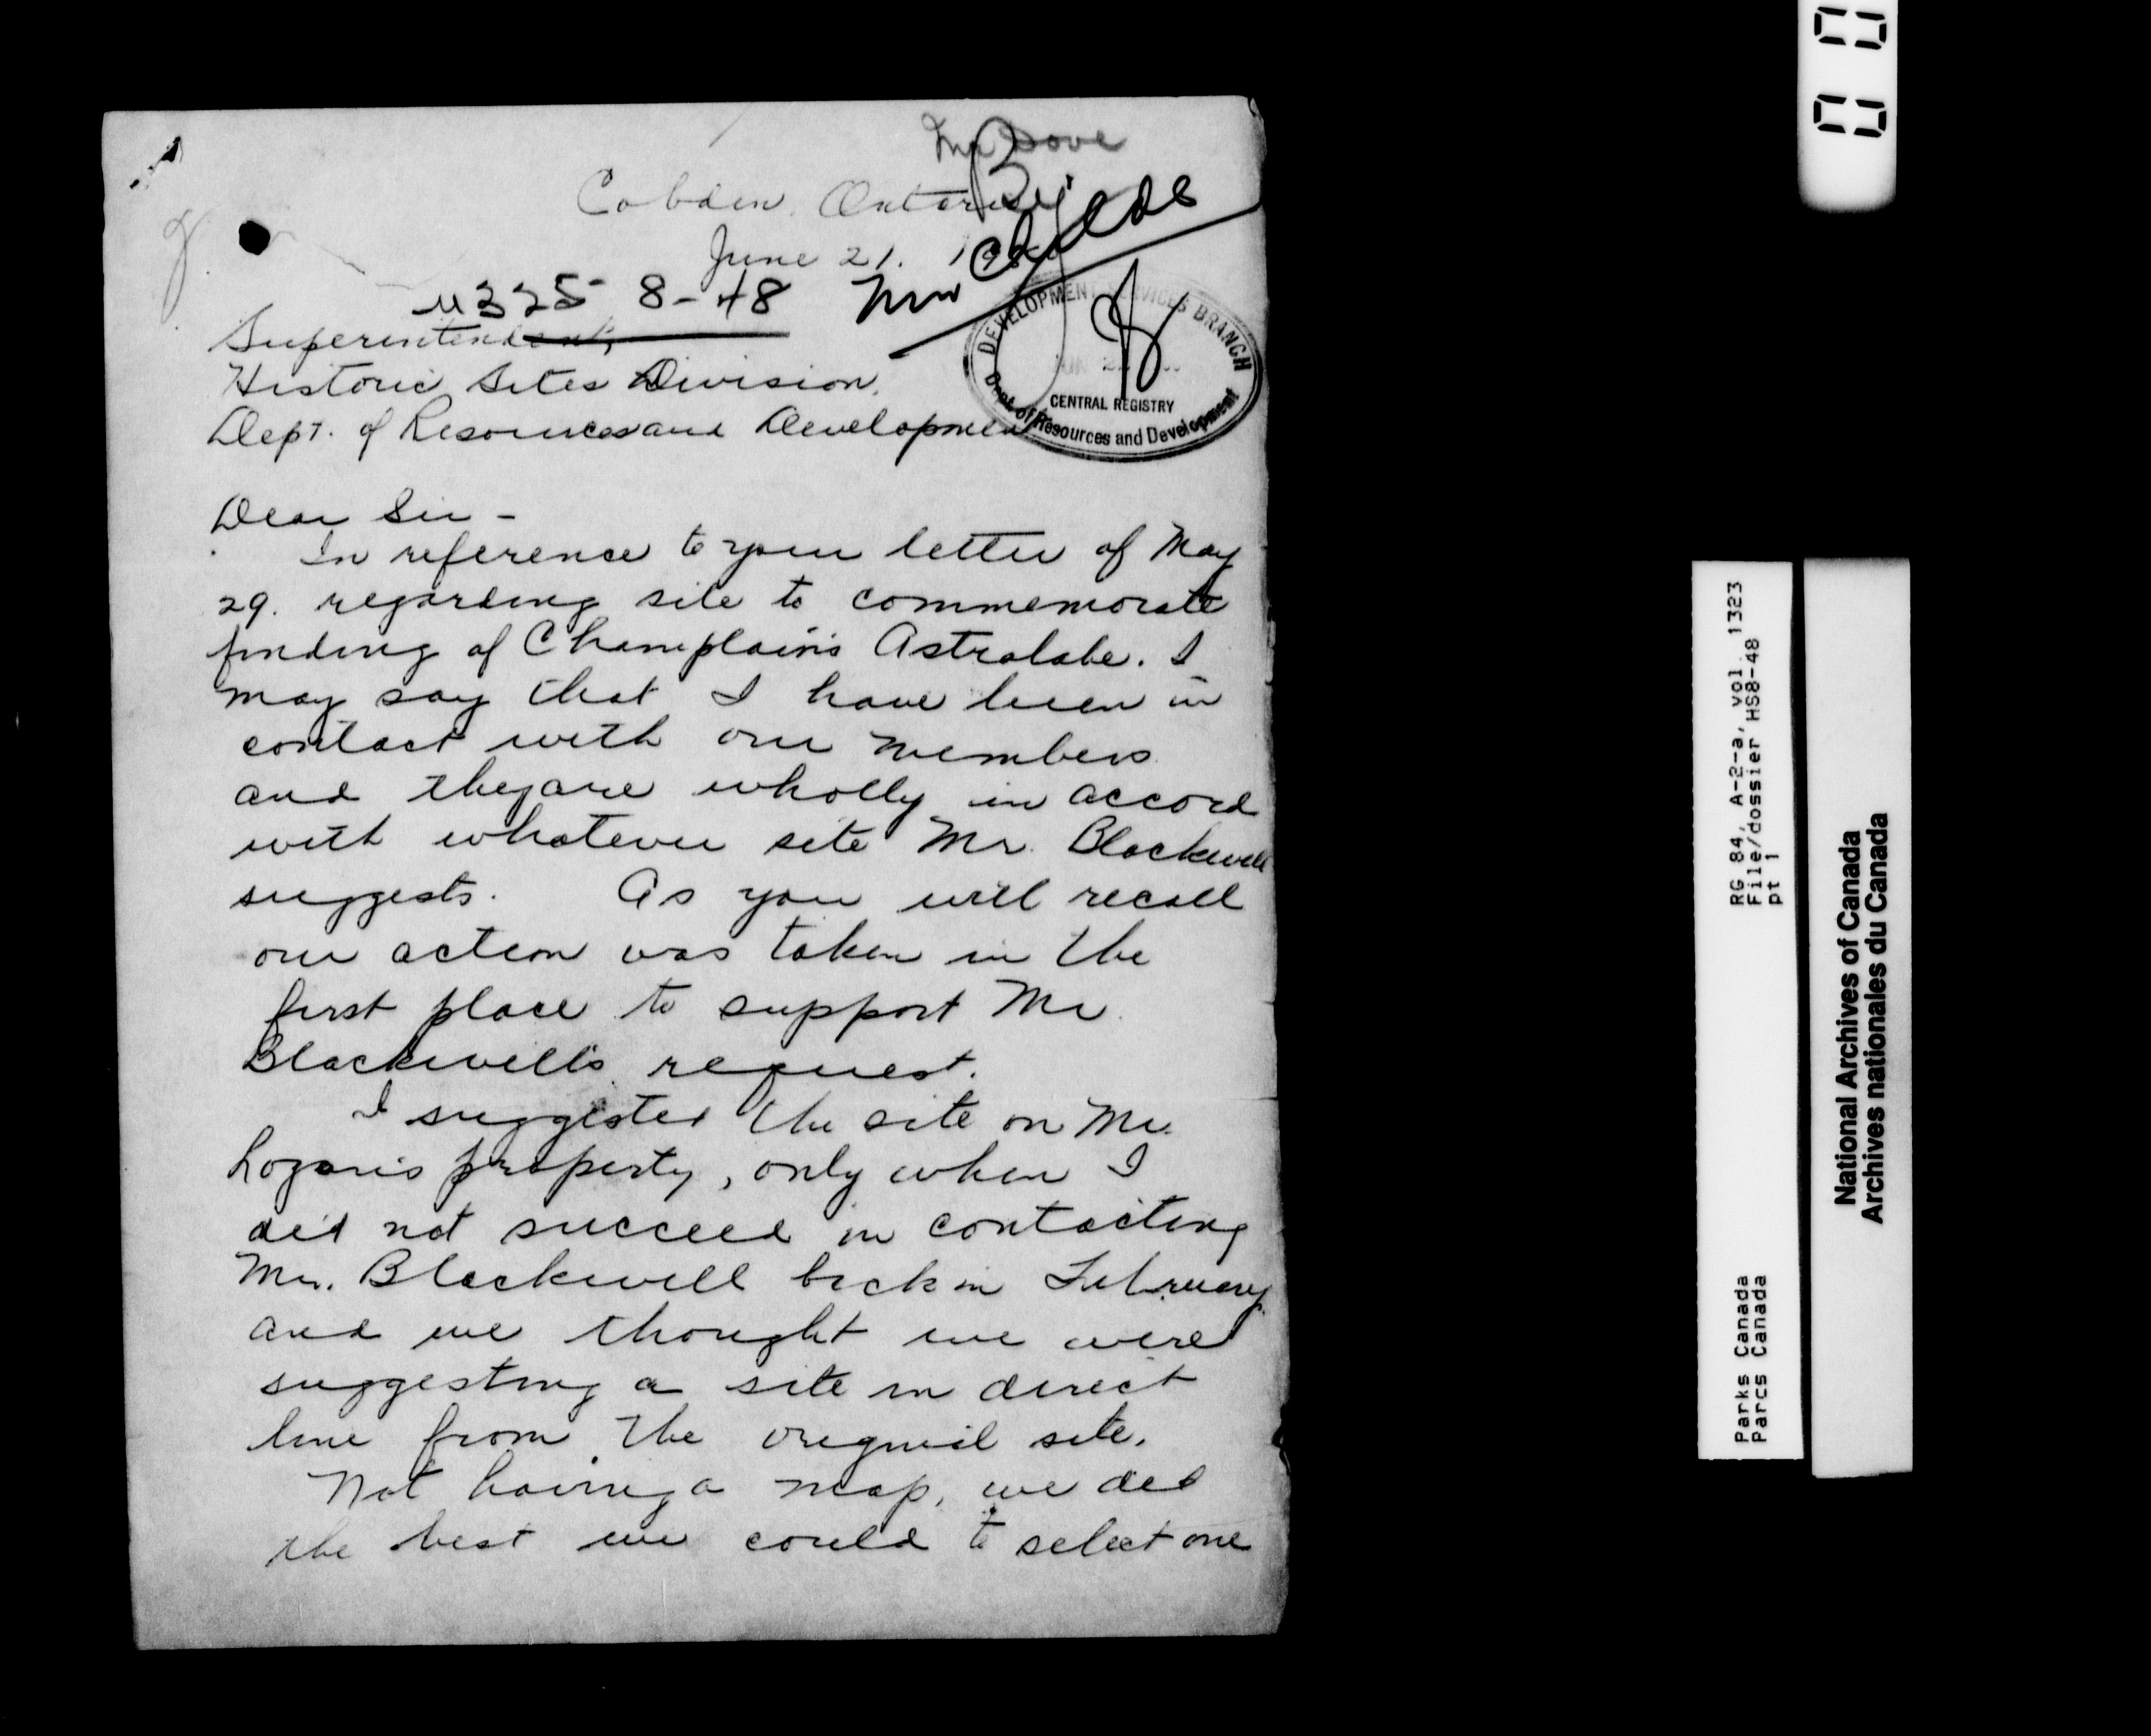 Mr Dove
Cobden, Ontario
June 21.
M325 8-48 Mr Childs
DEVELOPMENT SERVICES BRANCH
CENTRAL REGISTRY
Dept. of Resources and Development
Superintendent,
Historic Sites Division,
Dept. of Resources and Development
Dear Sir -
In reference to your letter of May
29. regarding site to commemorate
finding of Champlain's Astrolabe. I
may say that I have been in
contact with our members
and they are wholly in accord
with whatever site Mr. Blackwell
suggests. As you will recall
our action was taken in the
first place to support Mr.
Blackwell's request.
I suggested the site on Mr.
Logan's property, only when I
did not succeed in contacting
Mr. Blackwell back in February
and we thought we were
suggesting a site in direct
line from the original site.
Not having a map, we did
the best we could to select one
RG 84, A-2-a, vol. 1323
File/dossier HS8-48
pt 1
Parks Canada
Parcs Canada
National Archives of Canada
Archives nationales du Canada